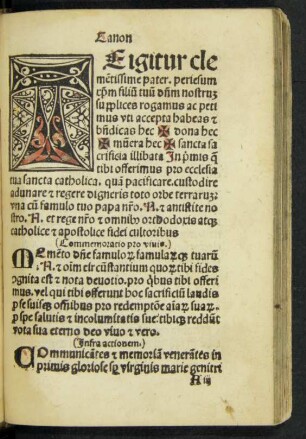 Canon
TE igitur cle
mẽtissime pater. periesum
xp̃m filiũ tuũ dñm nostruꝫ
supplices rogamus ac peti
mus vti accepta habeas ⁊
bñdicas hec ✠ dona hec
✠ mũera hec ✠ sancta sa
crificia illibata In p̃mis q̃
tibi offerimus pro ecclesia
tua sancta catholica. quã pacificare. custodire
adunare ⁊ regere digneris toto orbe terraruꝫ
vna cũ famulo tuo papa nr̃o. N. ⁊ antistite no
stro. N. et rege nr̃o ⁊ omnibꝰ orthodoxis atqꝫ
catholice ⁊ apostolice fidei cultoribus
(Commemoratio pro viuis.)
MEmẽto dñe famuloꝝ famularũqꝫ tuarũ
N. ⁊ oĩm circũstantium quoꝝ tibi fides
cognita est ⁊ nota deuotio. pro q̃bus tibi offeri
mus. vel qui tibi offerunt hoc sacrificiũ laudis
p se suisqꝫ oĩbus pro redemptõe aĩaꝝ suaꝝ.
p spe salutis ⁊ incolumitatis sue tibiqꝫ reddũt
vota sua eterno deo viuo ⁊ vero.
(Infra actionem.)
COmmunicãtes ⁊ memoriã venerãtes in
primis gloriose sp̃ virginis marie genitri
A iij